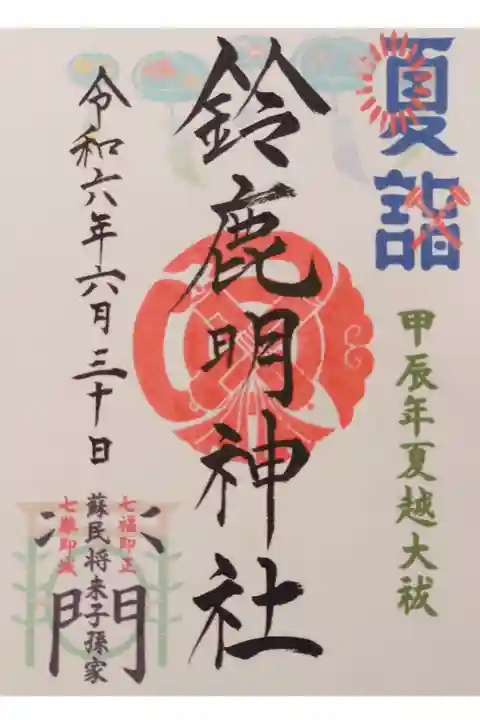 夏詣
甲辰年夏越大祓
鈴鹿明神社
令和六年六月三十日
七福即正
蘇民将来子孫家
七難即滅
門